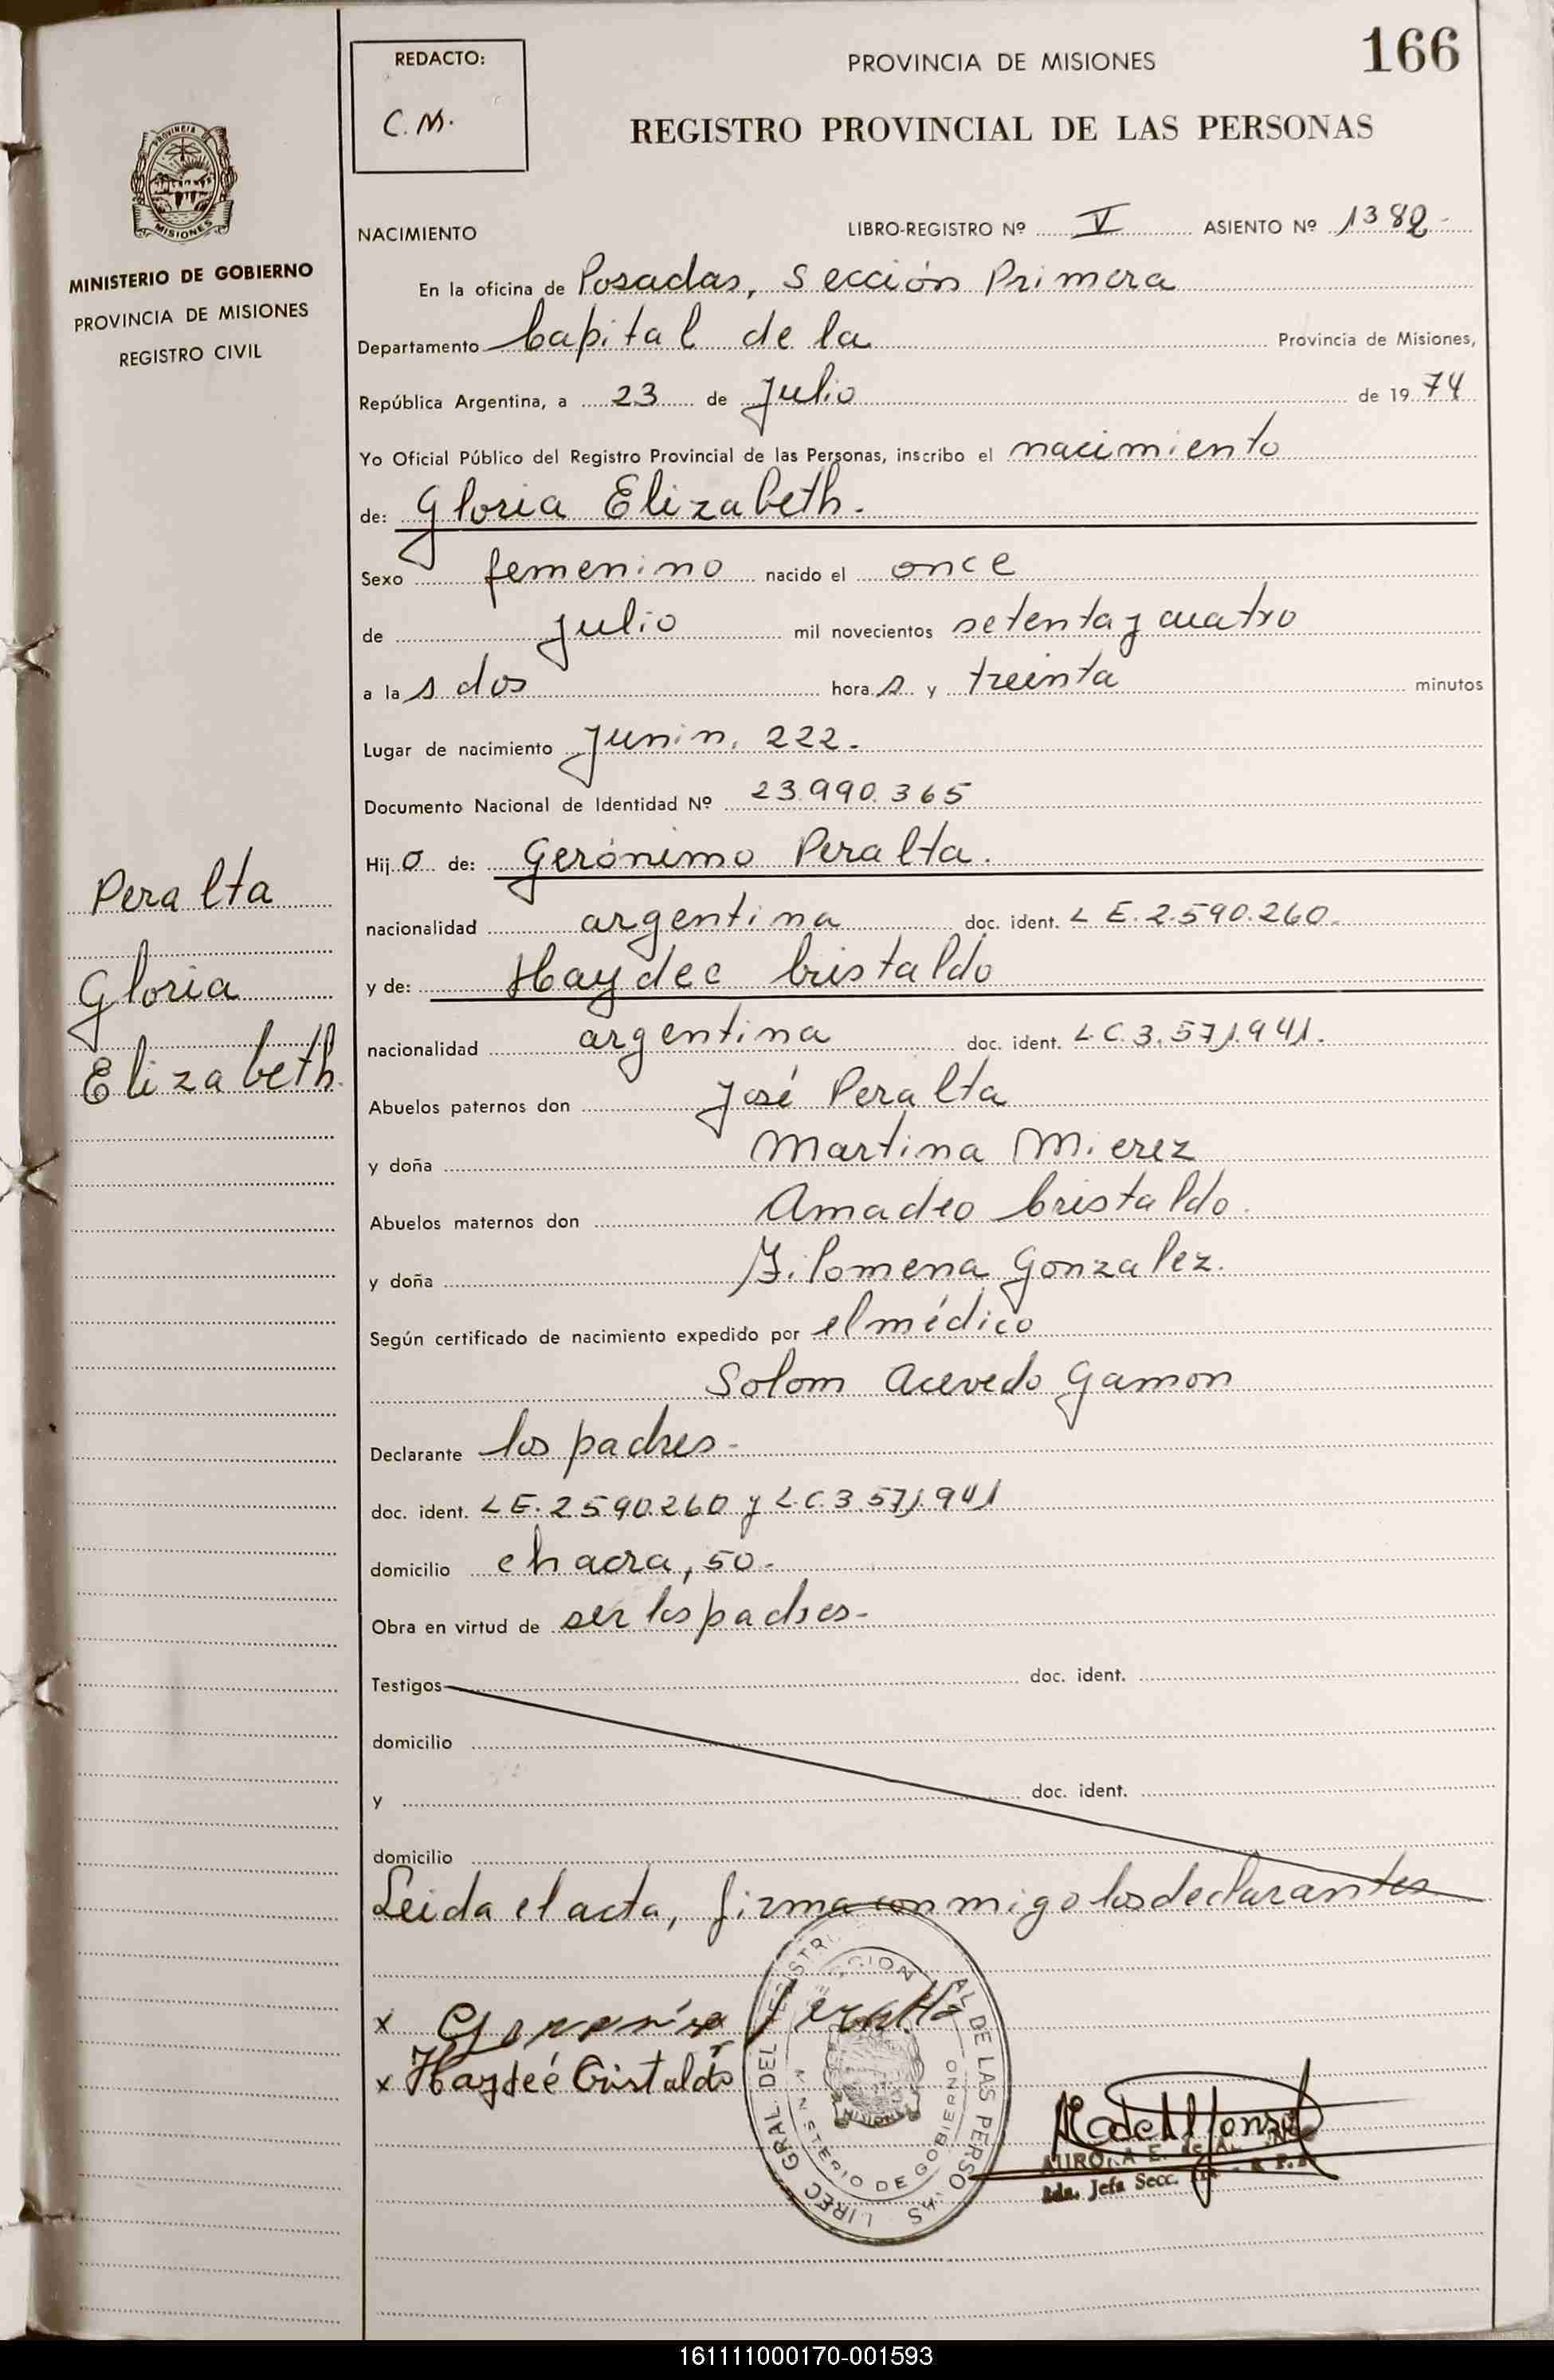 REDACTO:
C.M.
PROVINCIA DE MISIONES
166
REGISTRO PROVINCIAL DE LAS PERSONAS
PROVINCIA
MISIONES
MINISTERIO DE GOBIERNO
PROVINCIA DE MISIONES
REGISTRO CIVIL
NACIMIENTO LIBRO-REGISTRO Nº V ASIENTO Nº 1382-
En la oficina de Posadas, Sección Primera
Departamento Capital de la Provincia de Misiones,
República Argentina, a 23 de Julio de 1974
Yo Oficial Público del Registro Provincial de las Personas, inscribo el nacimiento
de: Gloria Elizabeth.
Sexo femenino nacido el once
de julio mil novecientos setenta y cuatro
a las dos horas y treinta minutos
Lugar de nacimiento Junin, 222.
Documento Nacional de Identidad Nº 23.990.365
Hijo de: Gerónimo Peralta.
nacionalidad argentina doc. ident. L E. 2.590.260.
y de: Haydee Cristaldo
nacionalidad argentina doc. ident. L.C. 3.571.941.
Abuelos paternos don José Peralta
y doña Martina Mierez
Abuelos maternos don Amadeo Cristaldo.
y doña Filomena Gonzalez.
Según certificado de nacimiento expedido por el médico
Solom Acevedo Gamon
Declarante los padres-
doc. ident. L E. 2.590.260 y L.C. 3.571.941
domicilio chacra, 50-
Obra en virtud de ser los padres-
Testigos doc. ident.
domicilio
y doc. ident.
domicilio
Leida el acta, firma conmigo los declarantes
Peralta
Gloria
Elizabeth.
x Peralta
x Haydeé Cristaldo
GRAL. DEL DE LAS
MINISTERIO DE GOBIERNO
MISIONES
AURORA E. de
2da. Jefa Secc.
161111000170-001593